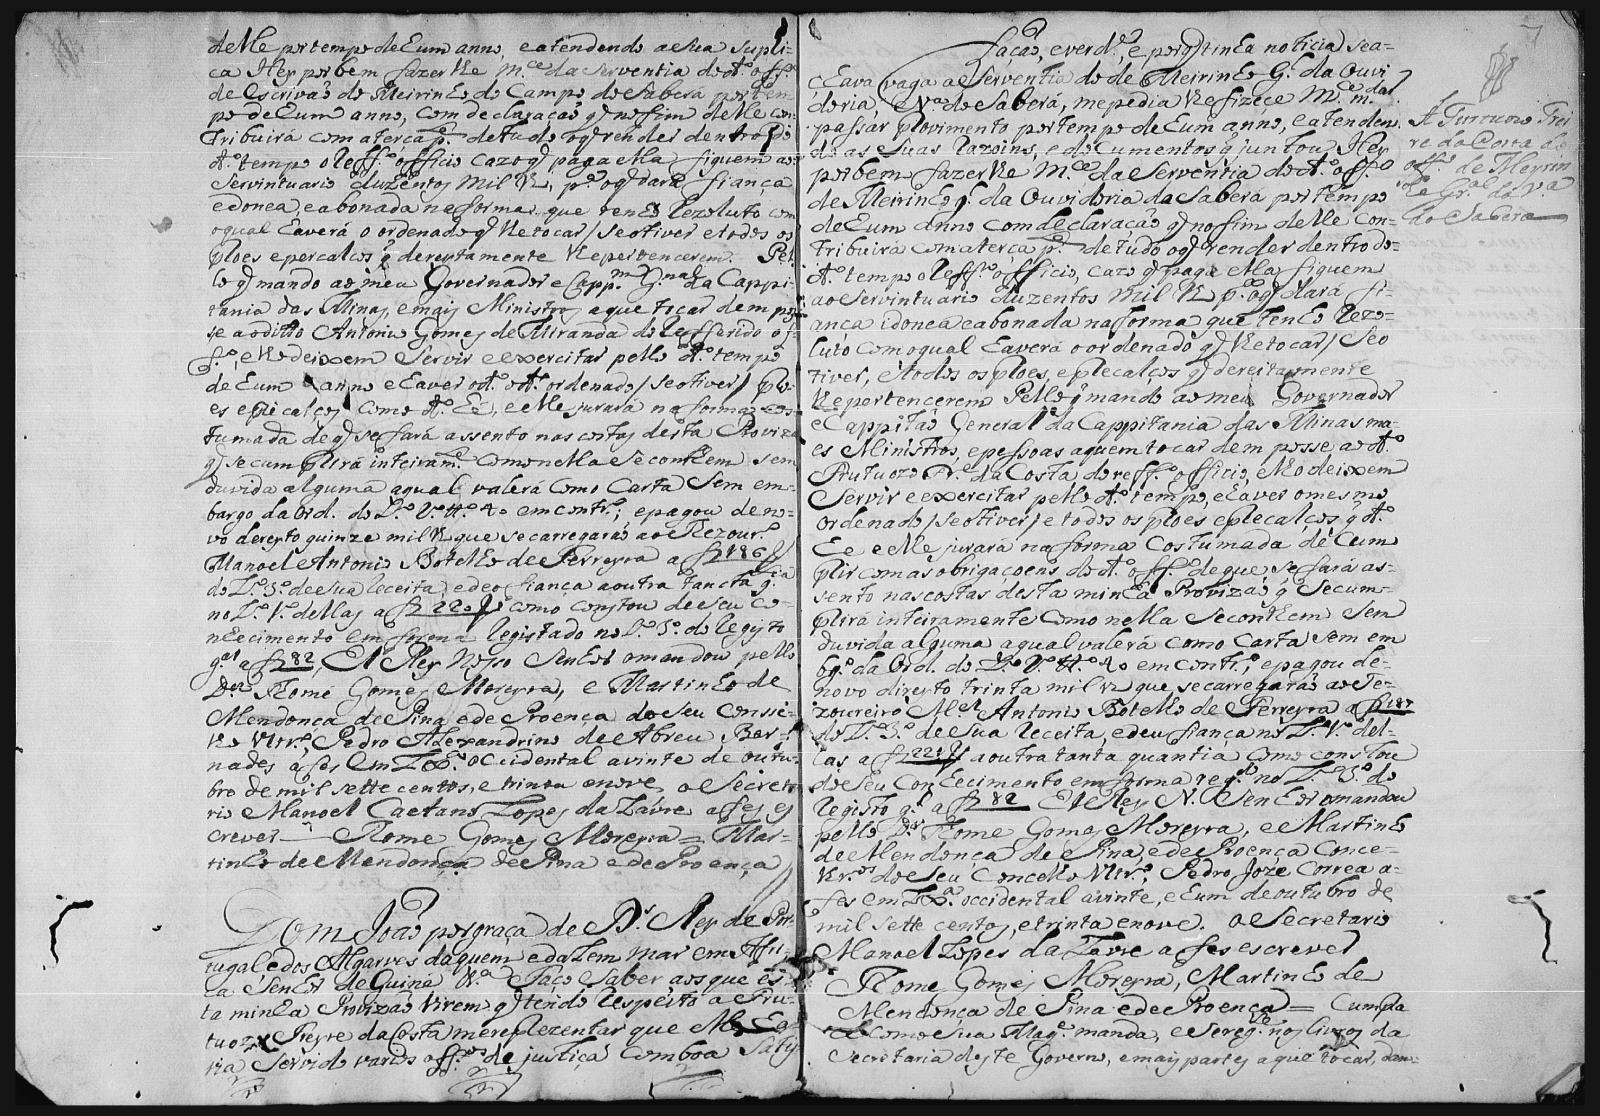 delle por tempo de hum anno, e atendendo a sua supli-
ca Hey por bem fazer lhe m.ce da serventia do d.o off.o
de Escrivaõ do Meirinho do Campo do Sabará por tem-
po de hum anno, com declaraçaõ q no fim delle con-
tribuirá com a terça p.te de tudo o q render dentro do
d.o tempo o reff.o officio cazo q paga ella fiquem ao
Serventuario duzentos mil R, p.a o q dará fiança
edonea e abonada na forma que tenho rezoluto com
o qual haverá o ordenado q lhe tocar / se o tiver e todos os
proes e percalços q dereytamente lhe pertencerem. Pel-
lo q mando ao meu Governador e Capp.m G.nal da Cappi-
tania das Minas, e mais Ministros a que tocar dem pos-
se ao ditto Antonio Gomes de Miranda do refferido of-
f.o, e lho deixem servir e exercitar pello d.o tempo
de hum anno e haver o d.o ordenado / se o tiver / pro-
es e precalços como d.o he, e elle jurará na forma cos-
tumada de q se fará assento nas costas desta Provizaõ
q se cumprirá inteiram.te como nella se conthem sem
duvida alguma a qual valerá como Carta sem em-
bargo da Ord. do L.o 2.o tt.o 40 em contr.o; e pagou de no-
vo dereyto quinze mil R que se carregaraõ ao Thezour.o
Manoel Antonio Botelho de Ferreyra a f 186
do L.o 3.o de sua receita e deo fiança a outra tanta q.tia
no L.o 1.o dellas a f 220 como constou de seu co-
nhecimento em forma registado no L.o 3.o do registo
g.al a f 82, El Rey Nosso Senhor o mandou pello
D.or Thomé Gomes Moreyra, e Martinho de
Mendonca de Pina e de Proença do seu Conse-
lho Ultr.o, Pedro Alexandrino de Abreu Ber-
nades a fes em Lx.a occidental a vinte de outu-
bro de mil sette centos, e trinta e nove. o Secreta-
rio Manoel Caetano Lopes da Lavre a fes es
crever — Thome Gomes Moreyra = Mar-
tinho de Mendonça de Pina e de Proença
Dom Joaõ por graça de D.s Rey de Por-
tugal e dos Algarves daquem e dalem mar em Afri-
ca Senhor de Guiné &.a Faço Saber aos que es-
ta minha Provizaõ virem q tendo respeito a Fru-
tuozo Freyre da Costa me reprezentar que elle ha-
via servido varios off.os de justiça com boa satis
façaõ, e verd.e, e por q tinha noticia se a-
chava vaga a Serventia do de Meirinho G. da Ouvi
doria do Sabará, me pedia lhe fizece m.ce m.dar
passar Provimento por tempo de hum anno, e atenden-
do as suas razoins, e documentos q juntou Hey
por bem fazer lhe m.ce da serventia do d.o off.o
de Meirinho g. da Ouvidoria da Sabará por tempo
de hum anno com declaraçaõ q no fim delle con-
tribuirá com a terça p.te de tudo o q render dentro do
d.o tempo o reff.o officio, cazo q paga ella fiquem
ao Serventuario duzentos mil R p.a o q dará fi-
ança idonea e abonada na forma que tenho rezo-
luto com o qual haverá o ordenado q lhe tocar / se o
tiver, e todos os proes, e precalços q dereitamente
lhe pertencerem Pello q mando ao meu Governador
e Cappitaõ General da Cappitania das Minas ma-
es Ministros, e pessoas a quem tocar dem posse ao d.o
Frutuozo Fr.e da Costa do reff.o officio, e lho deixem
servir e exercitar pello d.o tempo, e haver o mesmo
ordenado / se o tiver / e todos os proes e precalços q d.o
he e elle jurará na forma costumada de cum
prir com as obrigaçoens do d.o off.o de que se fará as-
sento nas costas desta minha Provizaõ q se cum-
prirá inteiramente como nella se conthem sem
duvida alguma a qual valerá como carta sem em
bg.o da Ord. do L.o 2.o tt.o 40 em contr.o, e pagou de
novo direyto trinta mil R que se carregaraõ ao The-
zoureiro M.el Antonio Botelho de Ferreyra a f 187
do L.o 3.o de sua receita, e deu fiança no L.o 1.o del-
las a f 221 a outra tanta quantia como constou
do seu conhecimento em forma reg.do no L.o 3.o do
registo g.l a f 82 El Rey N. Senhor o mandou
pello D.or Thome Gomes Moreyra, e Martinho
de Mendonca de Pina, e de Proença Conce-
lhr.os do seu Concelho Ultr.o, Pedro Jozé Correa a
fes em Lx.a occidental a vinte, e hum de outubro de
mil sette centos, e trinta e nove. o Secretario
Manoel Lopes da Lavre a fes escrever
Thome Gomes Moreyra, Martinho de
Mendonca de Pina e de Proença = Cumpra
se como Sua Mag.e manda, e se reg. nos livros da
Secretaria deste Governo, e mais partes a que tocar, dan-
A Frutuozo Frei
re da Costa do
off.o de Meyrin
ho G.al da Ov.a
do Sabará